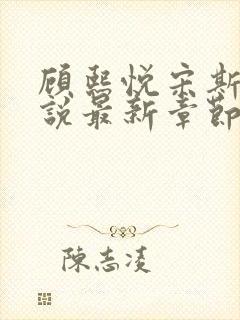 顾熙悦宋斯
說最新章節
陳志凌